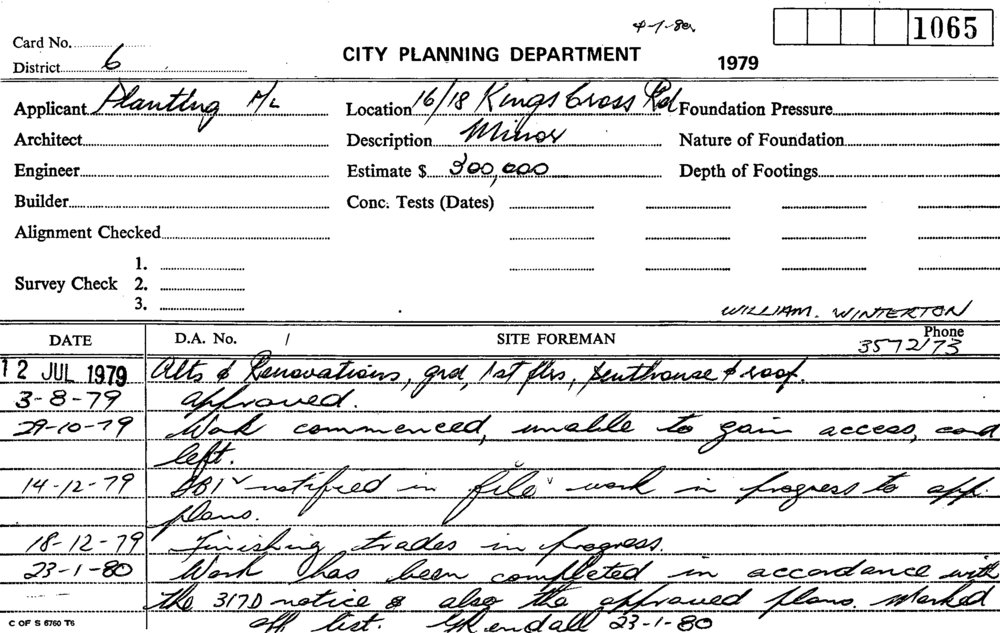 4-1-80.
1065
Card No.
CITY PLANNING DEPARTMENT 1979
District 6
Applicant Planting P/L Location 16/18 Kings Cross Rd Foundation Pressure
Architect Description Minor Nature of Foundation
Engineer Estimate $ 300,000 Depth of Footings
Builder Conc. Tests (Dates)
Alignment Checked
1.
Survey Check 2.
3.
WILLIAM. WINTERTON
DATE D.A. No. / SITE FOREMAN Phone
3572173
12 JUL 1979 Alts & Renovations, grd, 1st flrs, penthouse & roof.
3-8-79 approved.
29-10-79 Work commenced, unable to gain access, card
left.
14-12-79 notified in file work in progress to app.
plans.
18-12-79 Finishing trades in progress.
23-1-80 Work has been completed in accordance with
the 317D notice & also the approved plans. Marked
off list. 23-1-80
C OF S 6760 T6